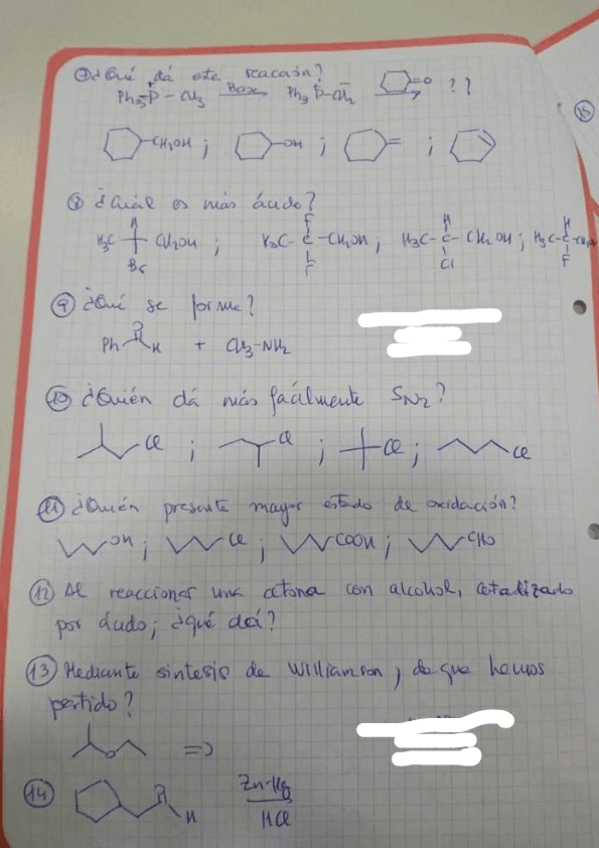 ⑦ ¿Qué dá esta reacción?
Ph₃P⁺ – CH₃ —Base→ Ph₃P⁺–CH₂⁻ =O → ??
CH₂OH ; OH ; = ;
⑧ ¿Cuál es más ácido?
H F H H
H₃C CH₂OH ; H₃C–C–CH₂OH ; H₃C–C–CH₂OH ; H₃C–C–CH₂OH
Br F Cl F
15
⑨ ¿Qué se forma?
Ph O H + CH₃–NH₂
⑩ ¿Quién dá más fácilmente SN2?
Cl ; Cl ; Cl ; Cl
⑪ ¿Quién presenta mayor estado de oxidación?
OH ; Cl ; COOH ; CHO
⑫ Al reaccionar una cetona con alcohol, catalizado
por ácido; ¿qué da?
⑬ Mediante síntesis de Williamson, de que hemos
partido?
O ⇒
⑭ O H Zn-Hg
HCl